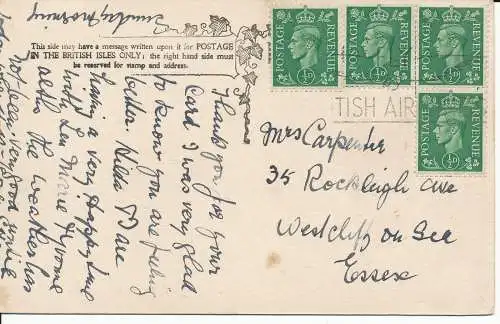 Sunday Morning
This side may have a message written upon it for POSTAGE
IN THE BRITISH ISLES ONLY; the right hand side must
be reserved for stamp and address.
Thank you for your
Card I was very glad
to know you are feeling
better. Hilda & I are
having a very happy time
with Len Marie & Yvonne
altho the weather has
not been very good
POSTAGE
REVENUE
½D
POSTAGE
REVENUE
½D
POSTAGE
REVENUE
½D
POSTAGE
REVENUE
½D
TISH AIR
Mrs Carpenter
35 Rockleigh Ave
Westcliff on Sea
Essex